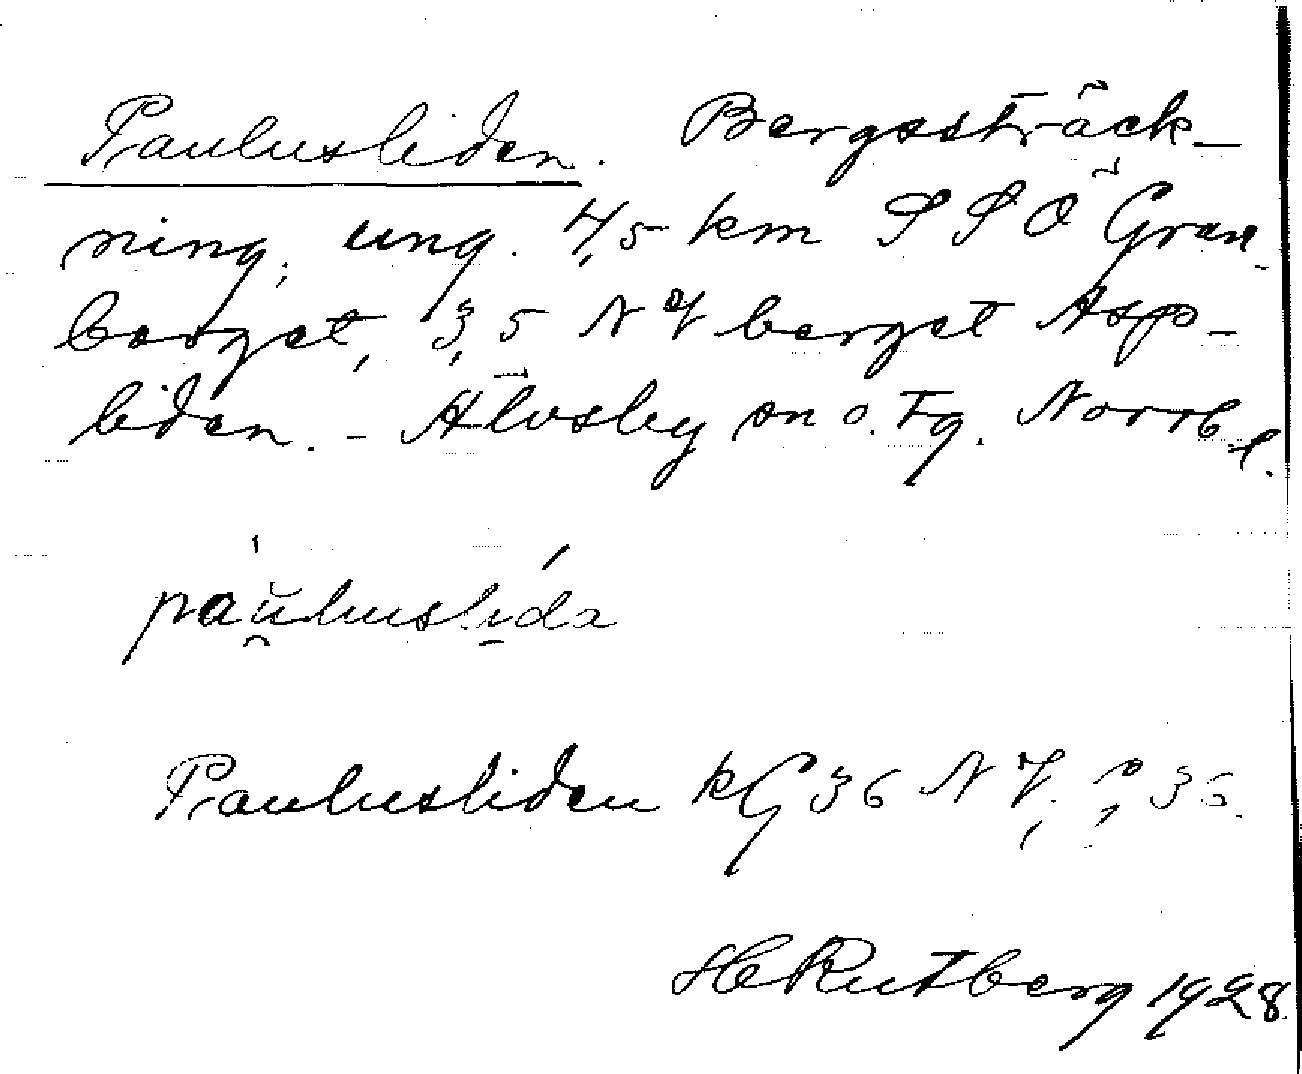 Paulusliden. Bergssträck-
ning, ung. 4,5 km S S Ö Gran-
berget, 3,5 N V berget Asp-
liden. - Älvsby sn o. tg. Norrb. l.
pau̯luslida
Paulusliden kG 36 N V, 36.
H Rutberg 1928